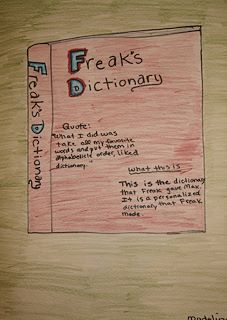 Freak's Dictionary
Freak's
Dictionary
Quote:
What I did was
take all my favorite
words and put them in
alphabetical order, liked
dictionary.
What this is
This is the dictionary
that Freak gave Max.
It is a personalized
dictionary that Freak
made.